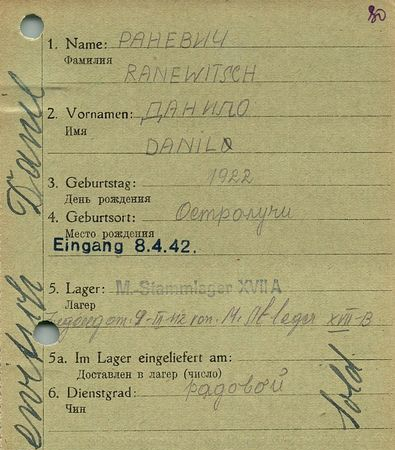 80
1. Name: РАНЕВИЧ
Фамилия
RANEWITSCH
2. Vornamen: ДАНИЛО
Имя
DANILO
3. Geburtstag: 1922
День рождения
4. Geburtsort: Остролучи
Место рождения
Eingang 8.4.42.
5. Lager: M.-Stammlager XVII A
Лагер
Zugang am 9-II-42 von M. lager XVII-B
5a. Im Lager eingeliefert am:
Доставлен в лагер (число)
6. Dienstgrad: радовой
Чин
Sold.